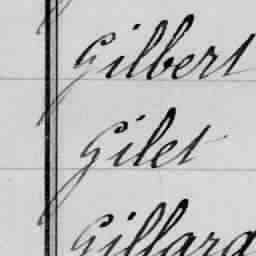 Gilbert
Gilet
Gillard